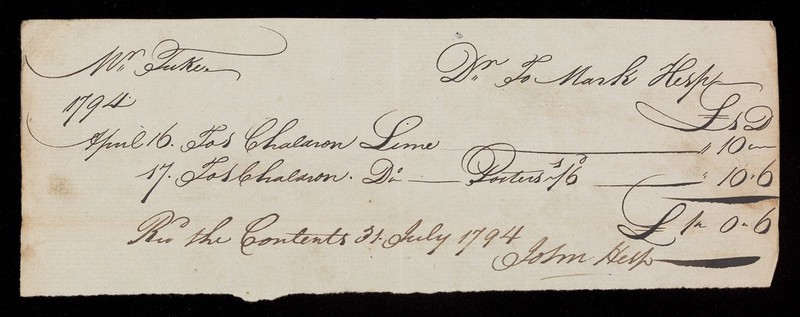 Mr Tuke Dr To Mark Hesp
1794 £ s D
April 16. To 8 Chalaron Lime " 10 "
17. To 8 Chalaron. Do Porters s/6d " 10 " 6
£ 1 " 0 " 6
Recd the Contents 31 July 1794
John Hesp